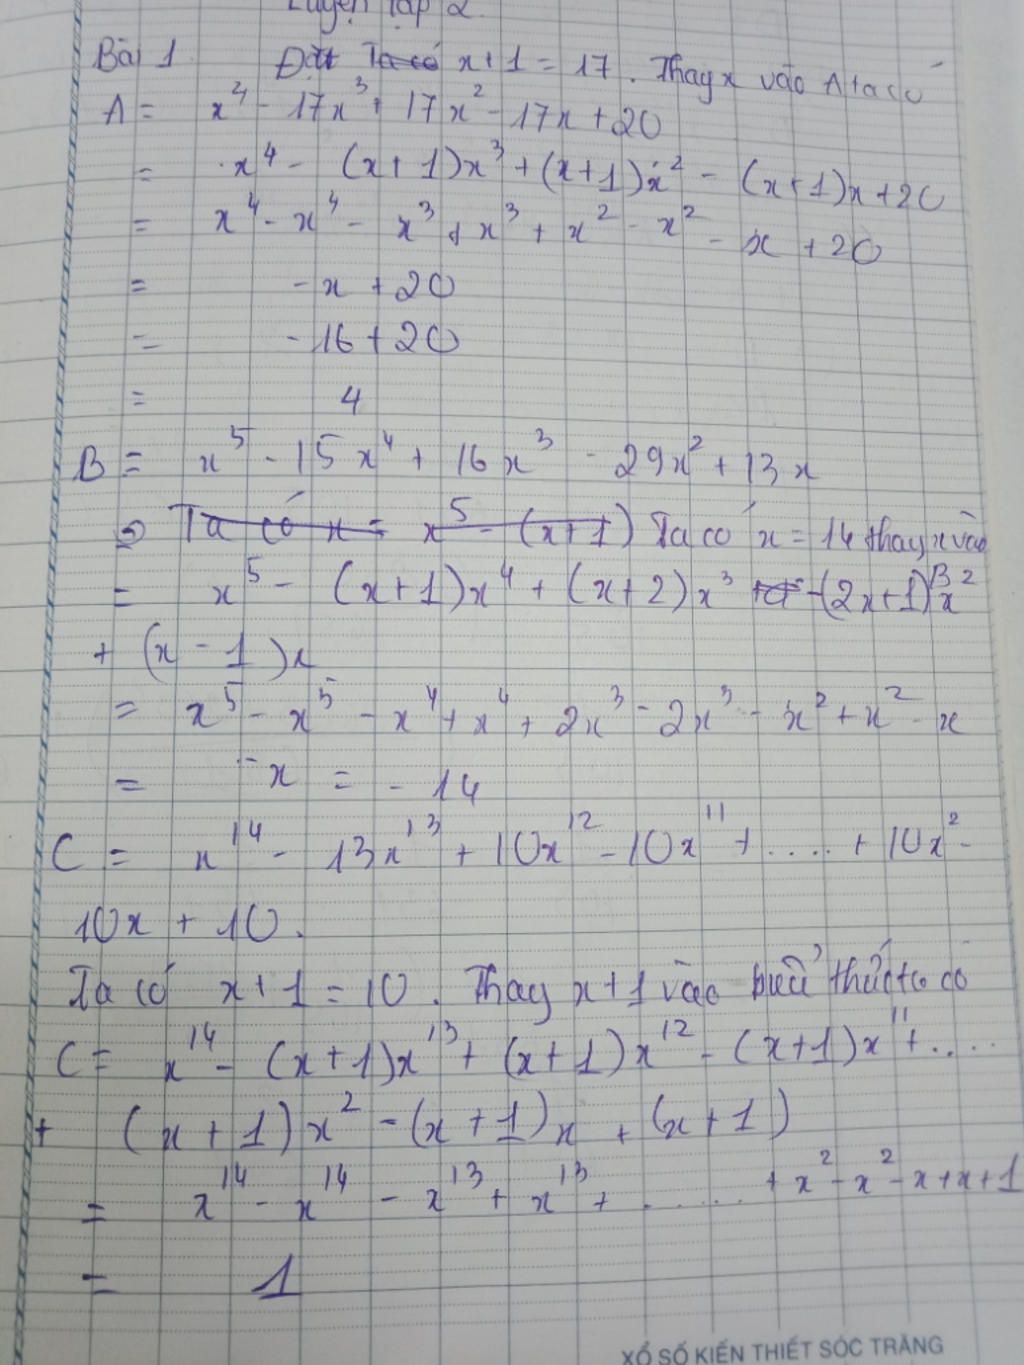 Luyện tập 2
Bài 1 Đặt Ta có x+1 = 17. Thay x vào A ta có
A = x⁴ - 17x³ + 17x² - 17x + 20
= x⁴ - (x+1)x³ + (x+1)x² - (x+1)x + 20
= x⁴ - x⁴ - x³ + x³ + x² - x² - x + 20
= -x + 20
= -16 + 20
= 4
B = x⁵ - 15x⁴ + 16x³ - 29x² + 13x
Ta có x = x⁵ - (x+1) Ta có x = 14 thay x vào B
= x⁵ - (x+1)x⁴ + (x+2)x³ - (2x+1)x²
+ (x-1)x
= x⁵ - x⁵ - x⁴ + x⁴ + 2x³ - 2x³ - x² + x² - x
= -x = -14
C = x¹⁴ - 13x¹³ + 10x¹² - 10x¹¹ + .... + 10x² -
10x + 10.
Ta có x+1 = 10. Thay x+1 vào biểu thức ta có
C = x¹⁴ - (x+1)x¹³ + (x+1)x¹² - (x+1)x¹¹ + .....
+ (x+1)x² - (x+1)x + (x+1)
= x¹⁴ - x¹⁴ - x¹³ + x¹³ + ....... + x² - x² - x + x + 1
= 1
XỔ SỐ KIẾN THIẾT SÓC TRĂNG